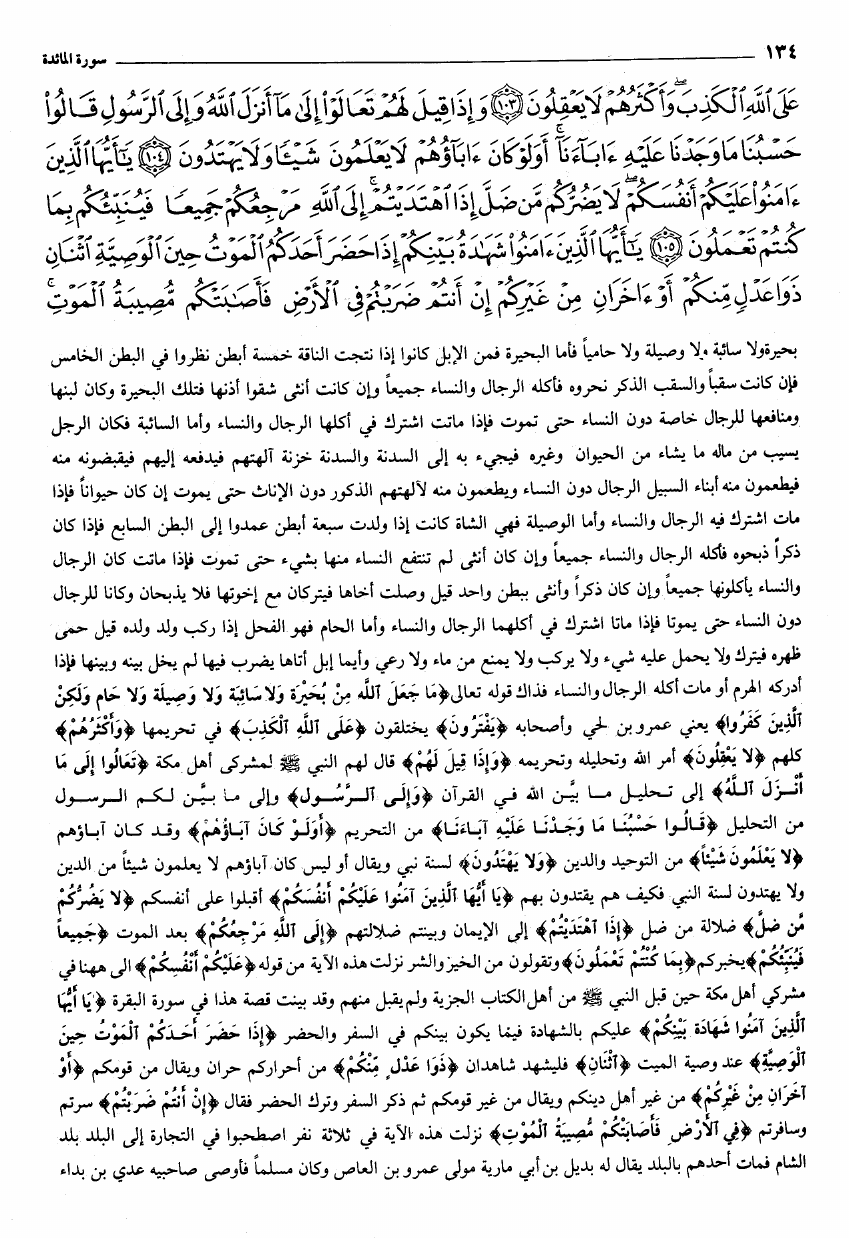 ١٣٤ سورة المائدة
عَلَى ٱللَّهِ ٱلْكَذِبَ ۖ وَأَكْثَرُهُمْ لَا يَعْقِلُونَ ١٠٣ وَإِذَا قِيلَ لَهُمْ تَعَالَوْا۟ إِلَىٰ مَآ أَنزَلَ ٱللَّهُ وَإِلَى ٱلرَّسُولِ قَالُوا۟
حَسْبُنَا مَا وَجَدْنَا عَلَيْهِ ءَابَآءَنَآ ۚ أَوَلَوْ كَانَ ءَابَآؤُهُمْ لَا يَعْلَمُونَ شَيْـًٔا وَلَا يَهْتَدُونَ ١٠٤ يَـٰٓأَيُّهَا ٱلَّذِينَ
ءَامَنُوا۟ عَلَيْكُمْ أَنفُسَكُمْ ۖ لَا يَضُرُّكُم مَّن ضَلَّ إِذَا ٱهْتَدَيْتُمْ ۚ إِلَى ٱللَّهِ مَرْجِعُكُمْ جَمِيعًا فَيُنَبِّئُكُم بِمَا
كُنتُمْ تَعْمَلُونَ ١٠٥ يَـٰٓأَيُّهَا ٱلَّذِينَ ءَامَنُوا۟ شَهَـٰدَةُ بَيْنِكُمْ إِذَا حَضَرَ أَحَدَكُمُ ٱلْمَوْتُ حِينَ ٱلْوَصِيَّةِ ٱثْنَانِ
ذَوَا عَدْلٍ مِّنكُمْ أَوْ ءَاخَرَانِ مِنْ غَيْرِكُمْ إِنْ أَنتُمْ ضَرَبْتُمْ فِى ٱلْأَرْضِ فَأَصَـٰبَتْكُم مُّصِيبَةُ ٱلْمَوْتِ ۚ
بحيرة ولا سائبة ولا وصيلة ولا حامياً فأما البحيرة فمن الإبل كانوا إذا نتجت الناقة خمسة أبطن نظروا في البطن الخامس
فإن كانت سقباً والسقب الذكر نحروه فأكله الرجال والنساء جميعاً وإن كانت أنثى شقوا أذنها فتلك البحيرة وكان لبنها
ومنافعها للرجال خاصة دون النساء حتى تموت فإذا ماتت اشترك في أكلها الرجال والنساء وأما السائبة فكان الرجل
يسيب من ماله ما يشاء من الحيوان وغيره فيجيء به إلى السدنة والسدنة خزنة آلهتهم فيدفعه إليهم فيقبضونه منه
فيطعمون منه أبناء السبيل الرجال دون النساء ويطعمون منه لآلهتهم الذكور دون الإناث حتى يموت إن كان حيواناً فإذا
مات اشترك فيه الرجال والنساء وأما الوصيلة فهي الشاة كانت إذا ولدت سبعة أبطن عمدوا إلى البطن السابع فإذا كان
ذكراً ذبحوه فأكله الرجال والنساء جميعاً وإن كان أنثى لم تنتفع النساء منها بشيء حتى تموت فإذا ماتت كان الرجال
والنساء يأكلونها جميعاً وإن كان ذكراً وأنثى ببطن واحد قيل وصلت أخاها فيتركان مع إخوتها فلا يذبحان وكانا للرجال
دون النساء حتى يموتا فإذا ماتا اشترك في أكلهما الرجال والنساء وأما الحام فهو الفحل إذا ركب ولد ولده قيل حمى
ظهره فيترك ولا يحمل عليه شيء ولا يركب ولا يمنع من ماء ولا رعي وأيما إبل أتاها يضرب فيها لم يخل بينه وبينها فإذا
أدركه الهرم أو مات أكله الرجال والنساء فذاك قوله تعالى ﴿مَا جَعَلَ ٱللَّه مِنْ بُحَيْرَة وَلَا سَائِبَة وَلَا وَصِيلَة وَلَا حَام وَلَكِنَّ
ٱلَّذِينَ كَفَرُوا﴾ يعني عمرو بن لحي وأصحابه ﴿يَفْتَرُونَ﴾ يختلقون ﴿عَلَى ٱللَّهِ ٱلْكَذِبَ﴾ في تحريمها ﴿وَأَكْثَرُهُمْ﴾
كلهم ﴿لَا يَعْقِلُونَ﴾ أمر الله وتحليله وتحريمه ﴿وَإِذَا قِيلَ لَهُمْ﴾ قال لهم النبي ﷺ لمشركى أهل مكة ﴿تَعَالُوا إِلَى مَا
أَنْزَلَ ٱللَّهُ﴾ إلى تحليل ما بيَّن الله في القرآن ﴿وَإِلَى ٱلرَّسُولِ﴾ وإلى ما بيَّن لكم الرسول
من التحليل ﴿قَالُوا حَسْبُنَا مَا وَجَدْنَا عَلَيْهِ آبَاءَنَا﴾ من التحريم ﴿أَوَلَوْ كَانَ آبَاؤُهُمْ﴾ وقد كان آباؤهم
﴿لَا يَعْلَمُونَ شَيْئاً﴾ من التوحيد والدين ﴿وَلَا يَهْتَدُونَ﴾ لسنة نبي ويقال أو ليس كان آباؤهم لا يعلمون شيئاً من الدين
ولا يهتدون لسنة النبي فكيف هم يقتدون بهم ﴿يَا أَيُّهَا ٱلَّذِينَ آمَنُوا عَلَيْكُمْ أَنْفُسَكُمْ﴾ أقبلوا على أنفسكم ﴿لَا يَضُرُّكُمْ
مَّن ضَلَّ﴾ ضلالة من ضل ﴿إِذَا ٱهْتَدَيْتُمْ﴾ إلى الإيمان وبينتم ضلالتهم ﴿إِلَى ٱللَّهِ مَرْجِعُكُمْ﴾ بعد الموت ﴿جَمِيعاً
فَيُنَبِّئُكُمْ﴾ يخبركم ﴿بِمَا كُنْتُمْ تَعْمَلُونَ﴾ وتقولون من الخير والشر نزلت هذه الآية من قوله ﴿عَلَيْكُمْ أَنْفُسِكُمْ﴾ الى ههنا في
مشركي أهل مكة حين قبل النبي ﷺ من أهل الكتاب الجزية ولم يقبل منهم وقد بينت قصة هذا في سورة البقرة ﴿يَا أَيُّهَا
ٱلَّذِينَ آمَنُوا شَهَادَة بَيْنِكُمْ﴾ عليكم بالشهادة فيما يكون بينكم في السفر والحضر ﴿إِذَا حَضَرَ أَحَدَكُمْ ٱلْمَوْتُ حِينَ
ٱلْوَصِيَّةِ﴾ عند وصية الميت ﴿ٱثْنَانِ﴾ فليشهد شاهدان ﴿ذَوَا عَدْلٍ مِّنْكُمْ﴾ من أحراركم حران ويقال من قومكم ﴿أَوْ
آخَرَانِ مِنْ غَيْرِكُمْ﴾ من غير أهل دينكم ويقال من غير قومكم ثم ذكر السفر وترك الحضر فقال ﴿إِنْ أَنْتُمْ ضَرَبْتُمْ﴾ سرتم
وسافرتم ﴿فِي ٱلْأَرْضِ فَأَصَابَتْكُمْ مُّصِيبَةُ ٱلْمَوْتِ﴾ نزلت هذه الآية في ثلاثة نفر اصطحبوا في التجارة إلى البلد بلد
الشام فمات أحدهم بالبلد يقال له بديل بن أبي مارية مولى عمرو بن العاص وكان مسلماً فأوصى صاحبيه عدي بن بداء